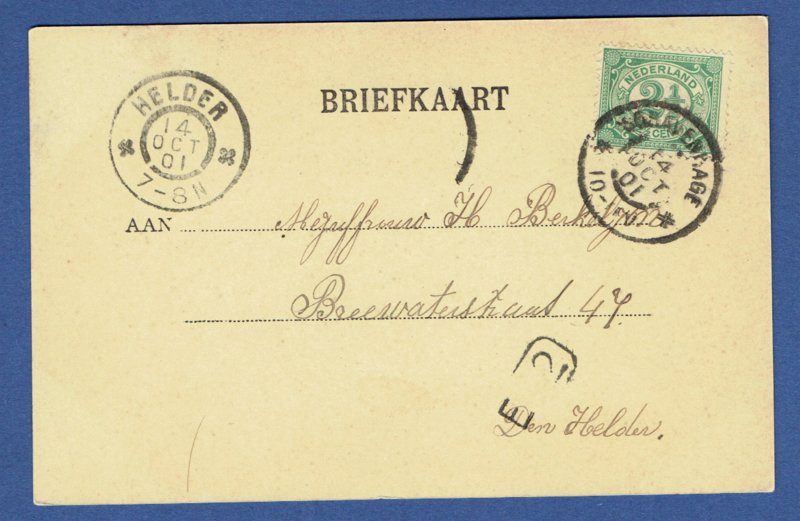 BRIEFKAART
NEDERLAND
2½
CENT
HELDER
14
OCT
01
7-8N
'S GRAVENHAGE
14
OCT
01
AAN Mejuffrouw H
Breewaterstraat 47
2
F
Den Helder.